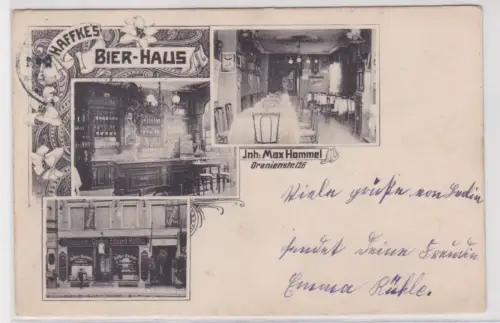 HAFFKE'S
BIER-HAUS
Jnh: Max Hammel
Oranienstr. 126
Viele grüße von Berlin
sendet deine Freundin
Emma Kühle.